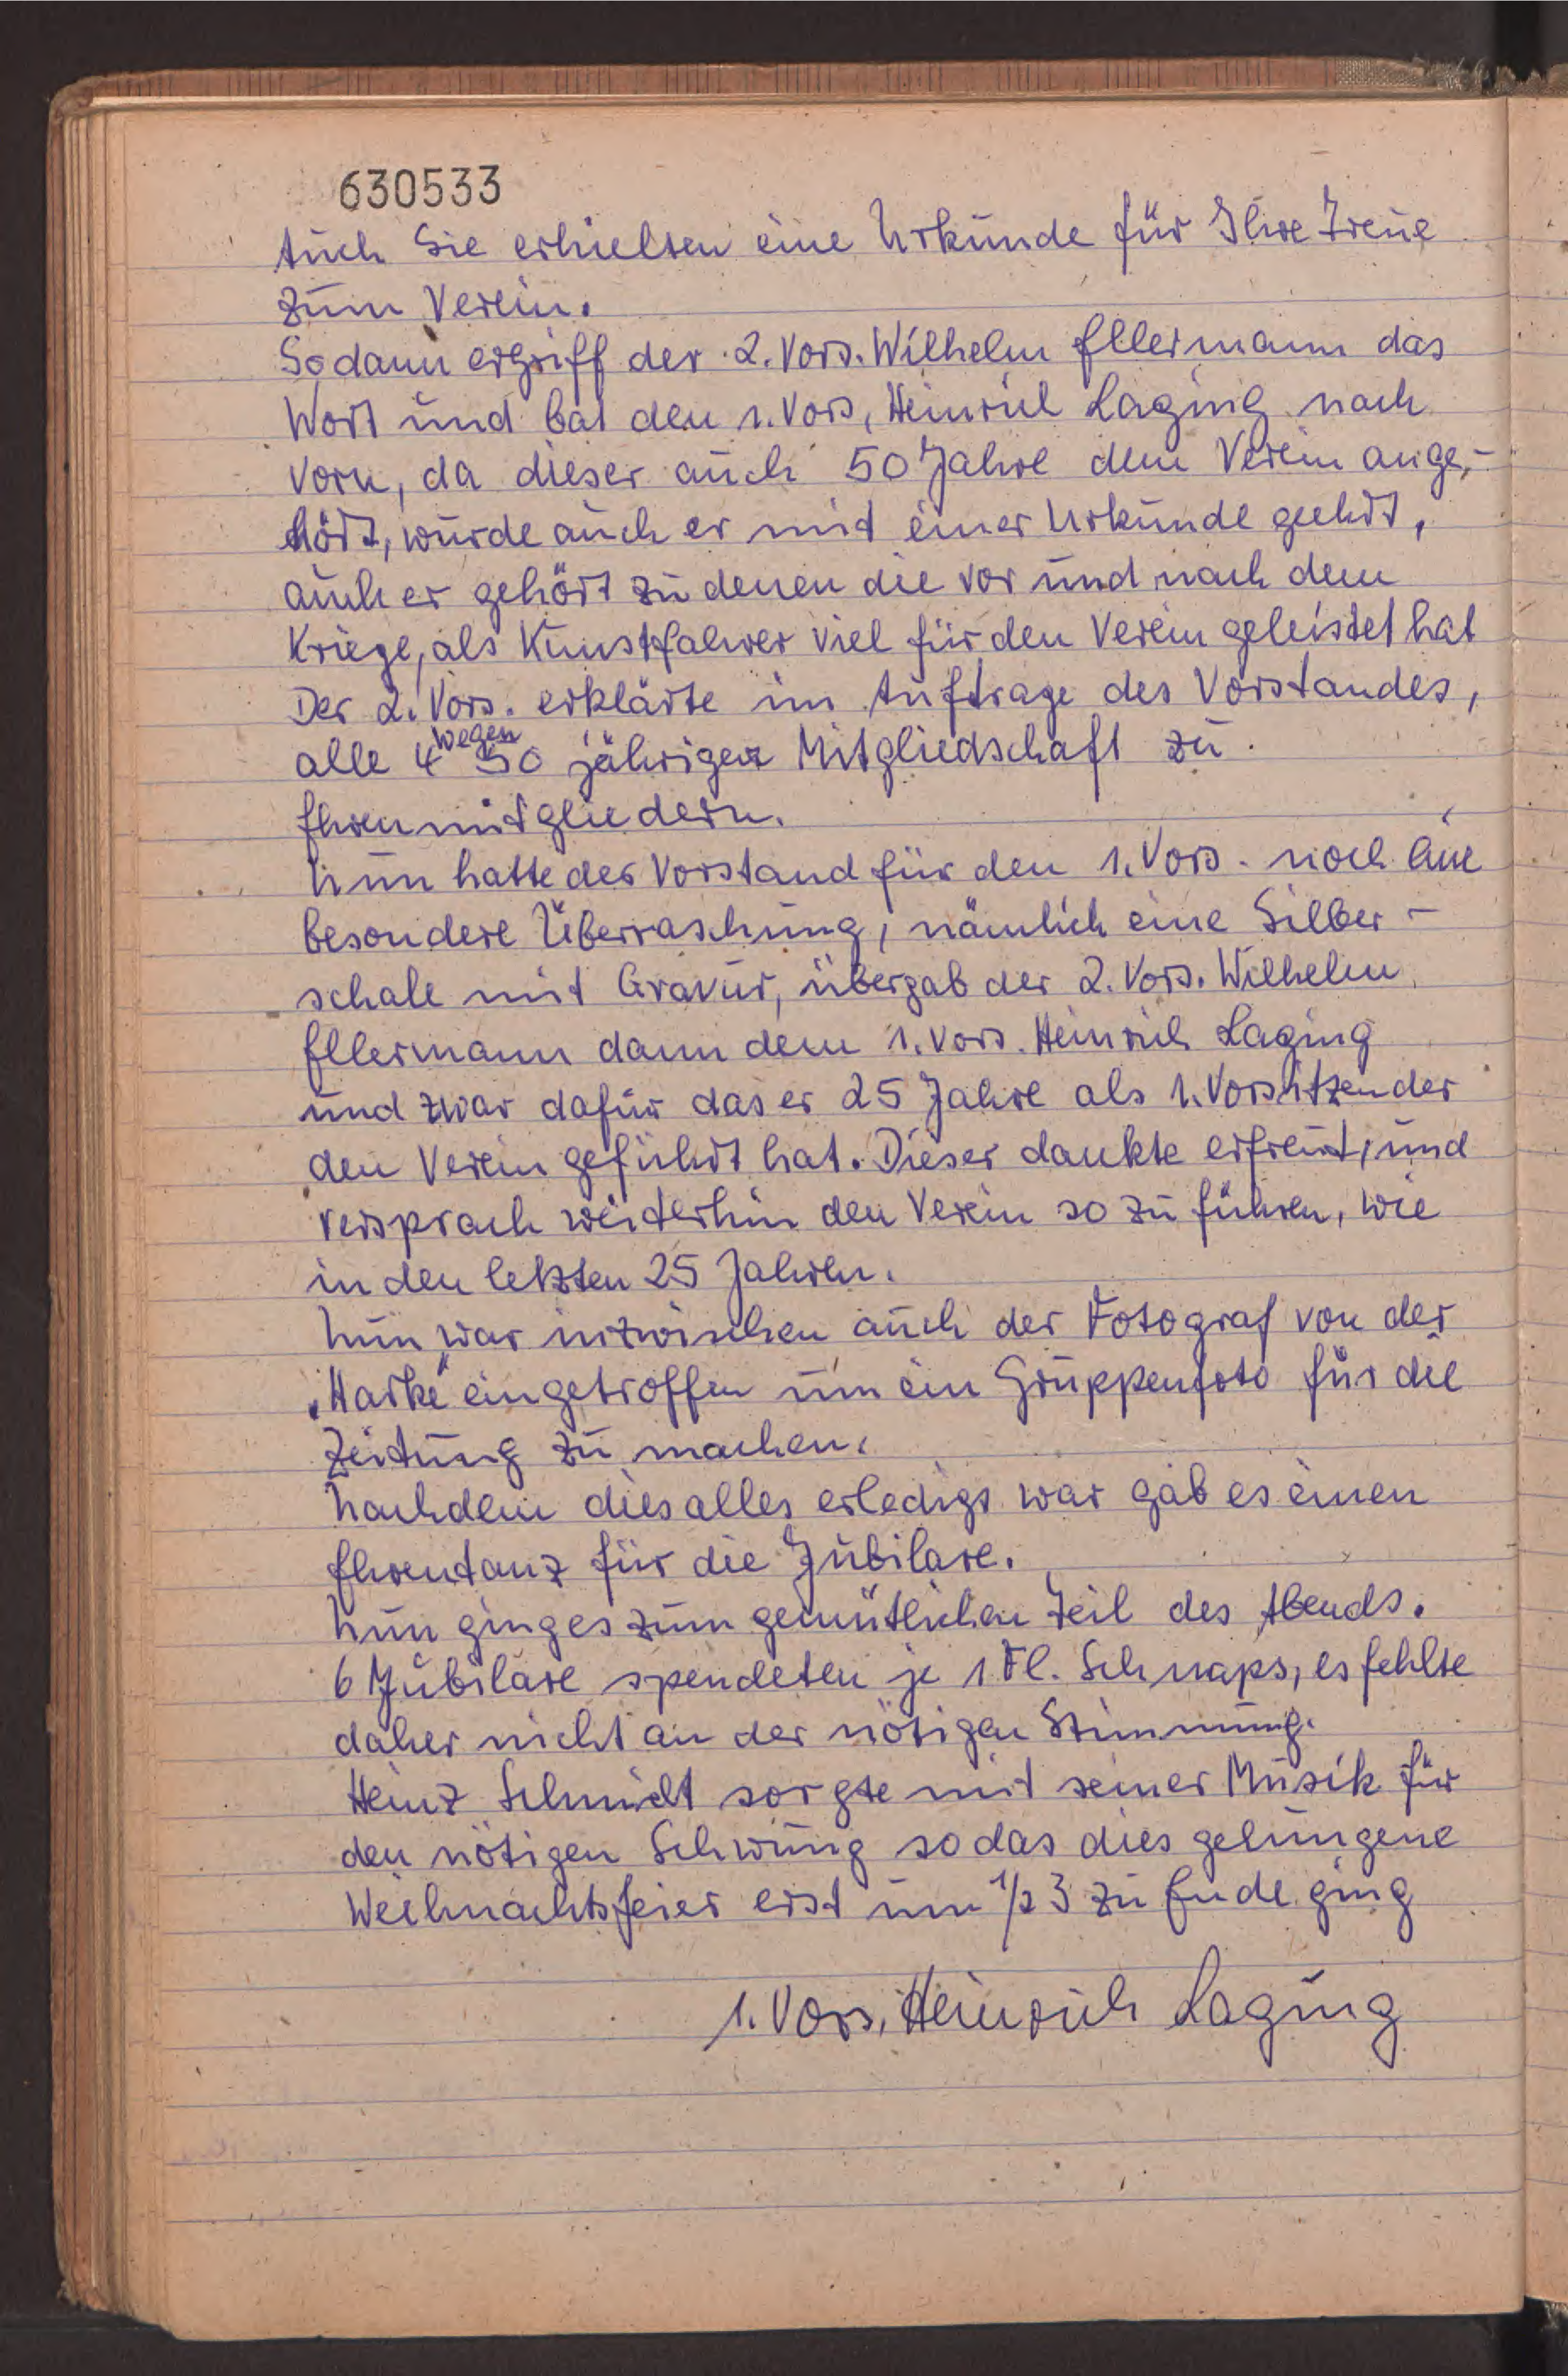 630533
Auch Sie erhielten eine Urkunde für Ihre Treue
zum Verein.
Sodann ergriff der 2. Vors. Wilhelm Ellermann das
Wort und bat den 1. Vors, Heinrich Laging nach
vorn, da dieser auch 50 Jahre dem Verein ange,-
hört, wurde auch er mit einer Urkunde geehrt,
auch er gehört zu denen die vor und nach dem
Kriege, als Kunstfahrer viel für den Verein geleistet hat
Der 2. Vors. erklärte im Auftrage des Vorstandes,
alle 4 wegen 50 jähriger Mitgliedschaft zu
Ehrenmitgliedern.
Nun hatte der Vorstand für den 1. Vors. noch eine
besondere Überraschung, nämlich eine Silber-
schale mit Gravur, übergab der 2. Vors. Wilhelm
Ellermann dann dem 1. Vors. Heinrich Laging
und zwar dafür das er 25 Jahre als 1. Vorsitzender
den Verein geführt hat. Dieser dankte erfreut, und
versprach weiterhin den Verein so zu führen, wie
in den letzten 25 Jahren.
Nun war inzwischen auch der Fotograf von der
„Harke" eingetroffen um ein Gruppenfoto für die
Zeitung zu machen.
Nachdem dies alles erledigt war gab es einen
Ehrentanz für die Jubilare.
Nun ging es zum gemütlichen Teil des Abends.
6 Jubilare spendeten je 1 Fl. Schnaps, es fehlte
daher nicht an der nötigen Stimmung.
Heinz Schmidt sorgte mit seiner Musik für
den nötigen Schwung so das dies gelungene
Weihnachtsfeier erst um 1/2 3 zu Ende ging
1. Vors. Heinrich Laging